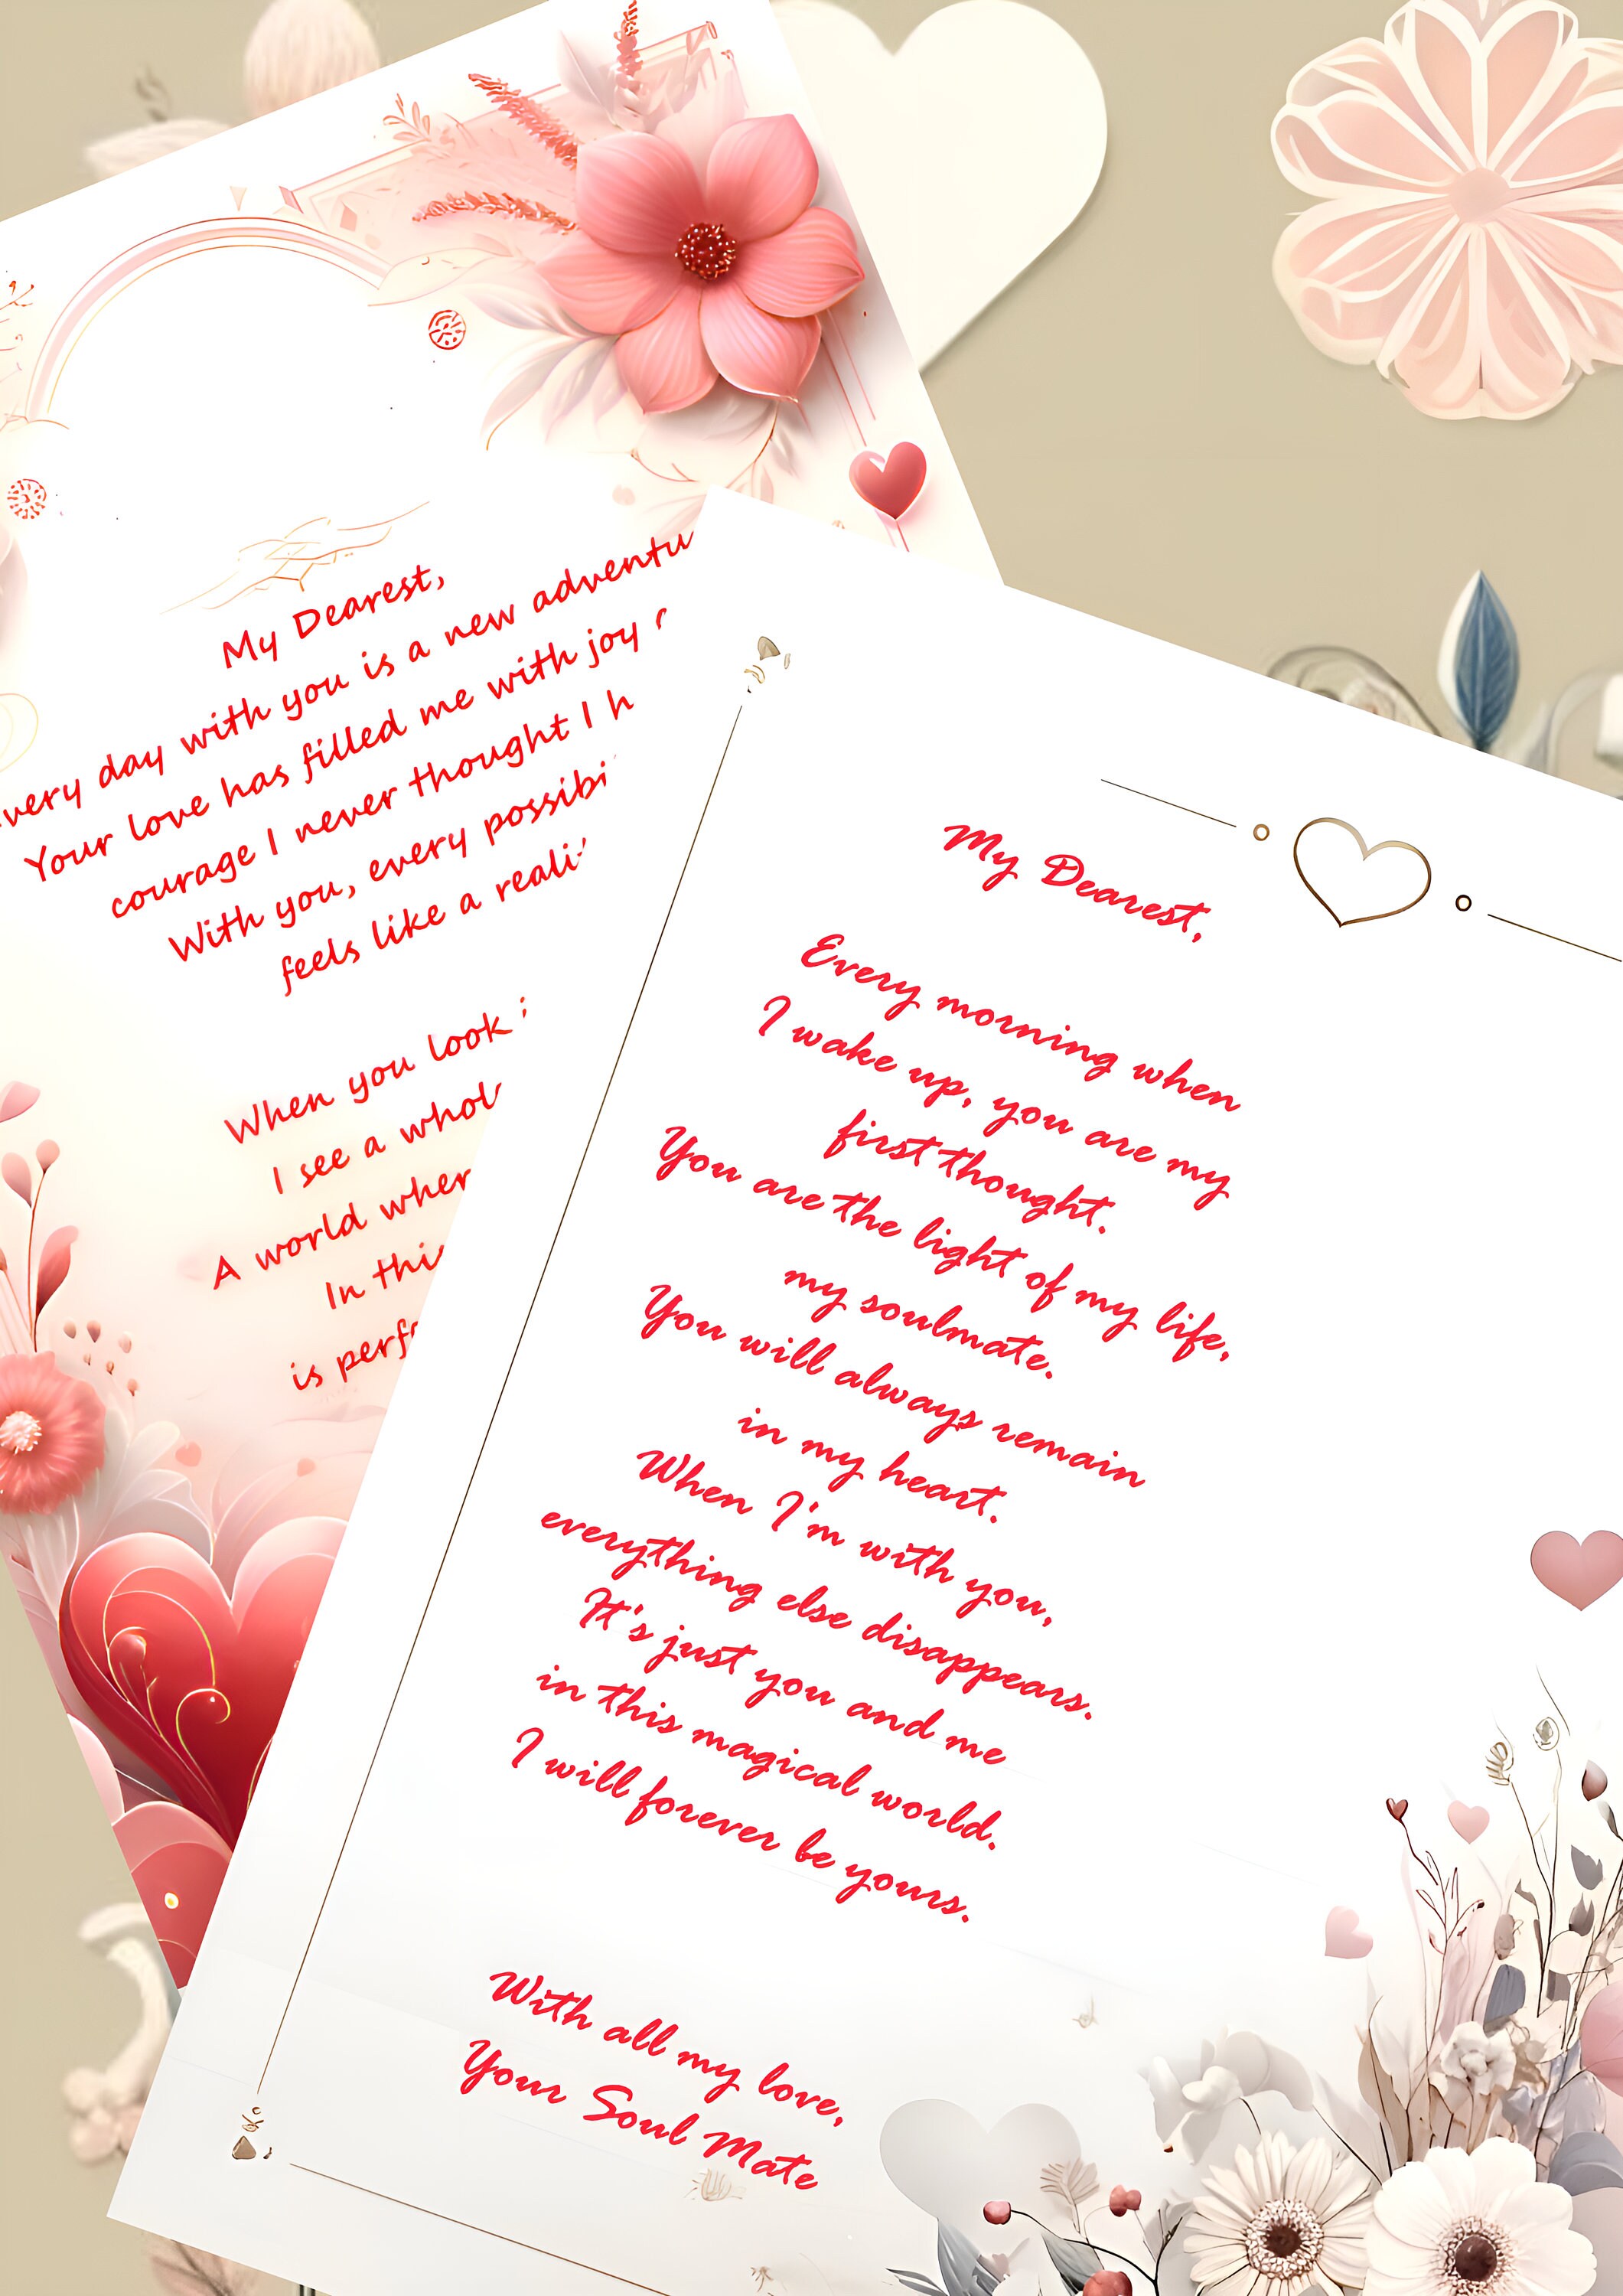 My Dearest,
day with you is a new
Your love has filled me with joy
courage I never thought I
With you, every
feels like a
When you look
I see a
A world
In
is
My Dearest,
Every morning when
I wake up, you are my
first thought.
You are the light of my life,
my soulmate.
You will always remain
in my heart.
When I'm with you,
everything else disappears.
It's just you and me
in this magical world.
I will forever be yours.
With all my love,
Your Soul Mate